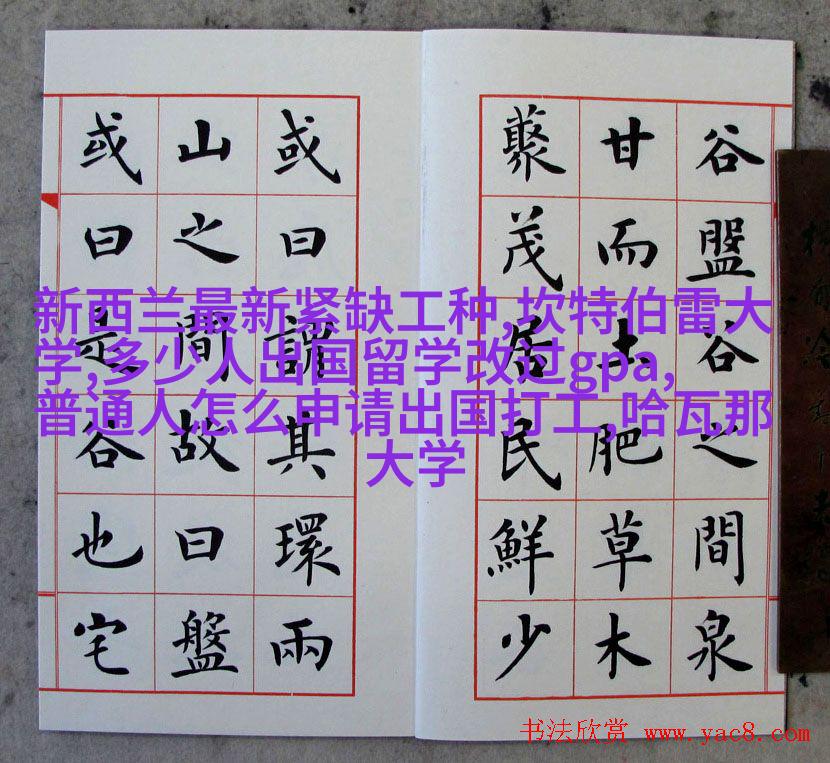 谷盤谷之間泉
甘而土肥草木
藂茂居民鮮少
或曰謂其環兩
山之間故曰盤
或曰是谷也宅
新西兰最新紧缺工种,坎特伯雷大
学,多少人出国留学改过gpa,
普通人怎么申请出国打工,哈瓦那
大学
书法欣赏 www.yac8.com